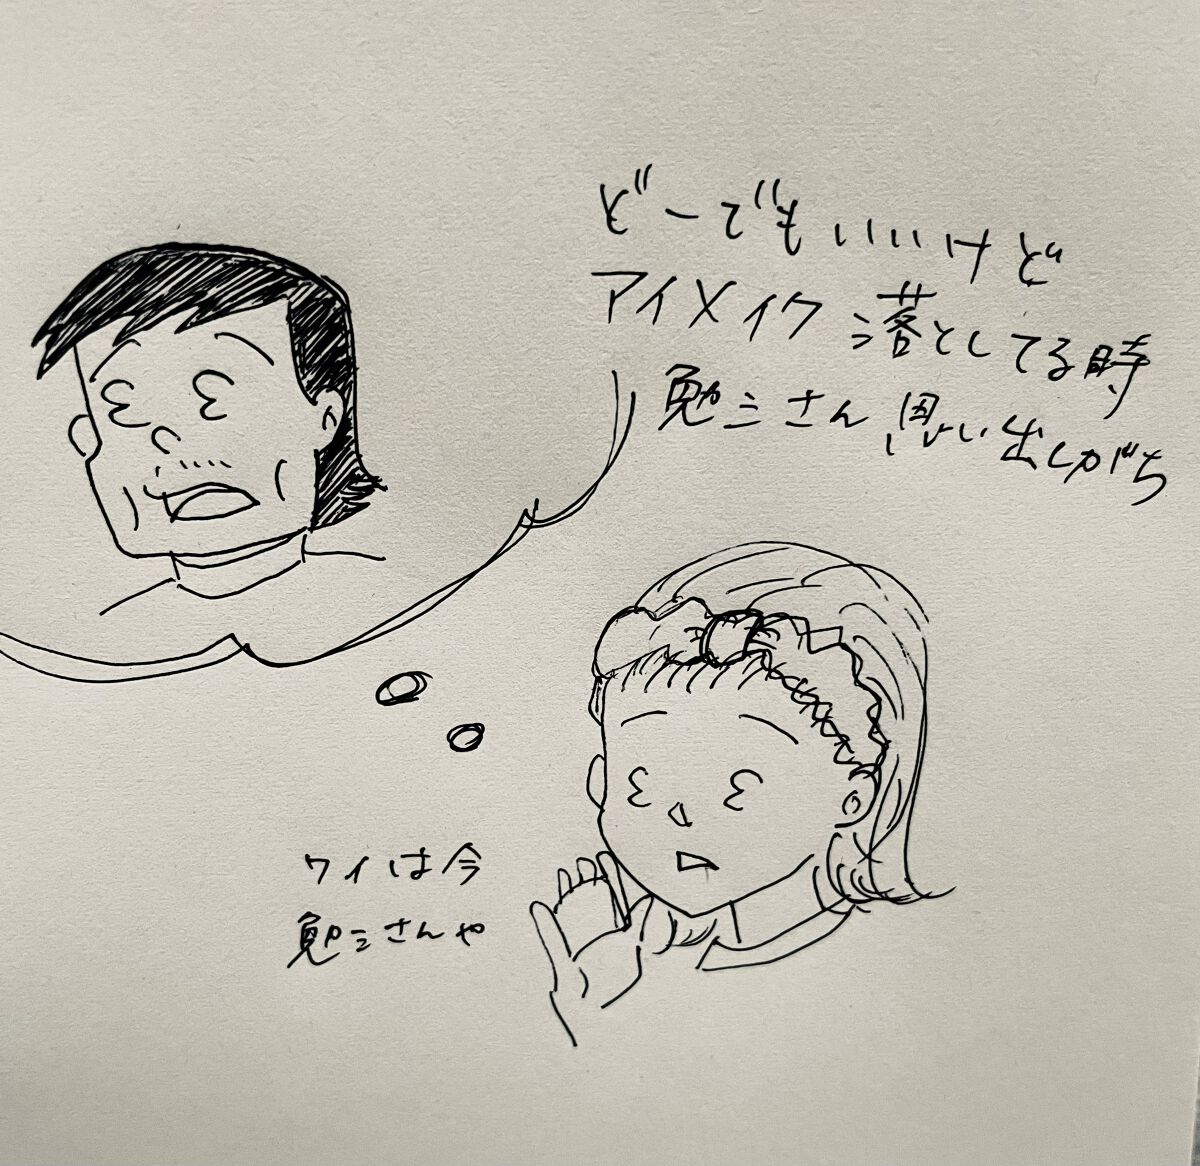 どーでもいいけど
アイメイク落としてる時
勉三さん思い出しがち
ワイは今
勉三さんや